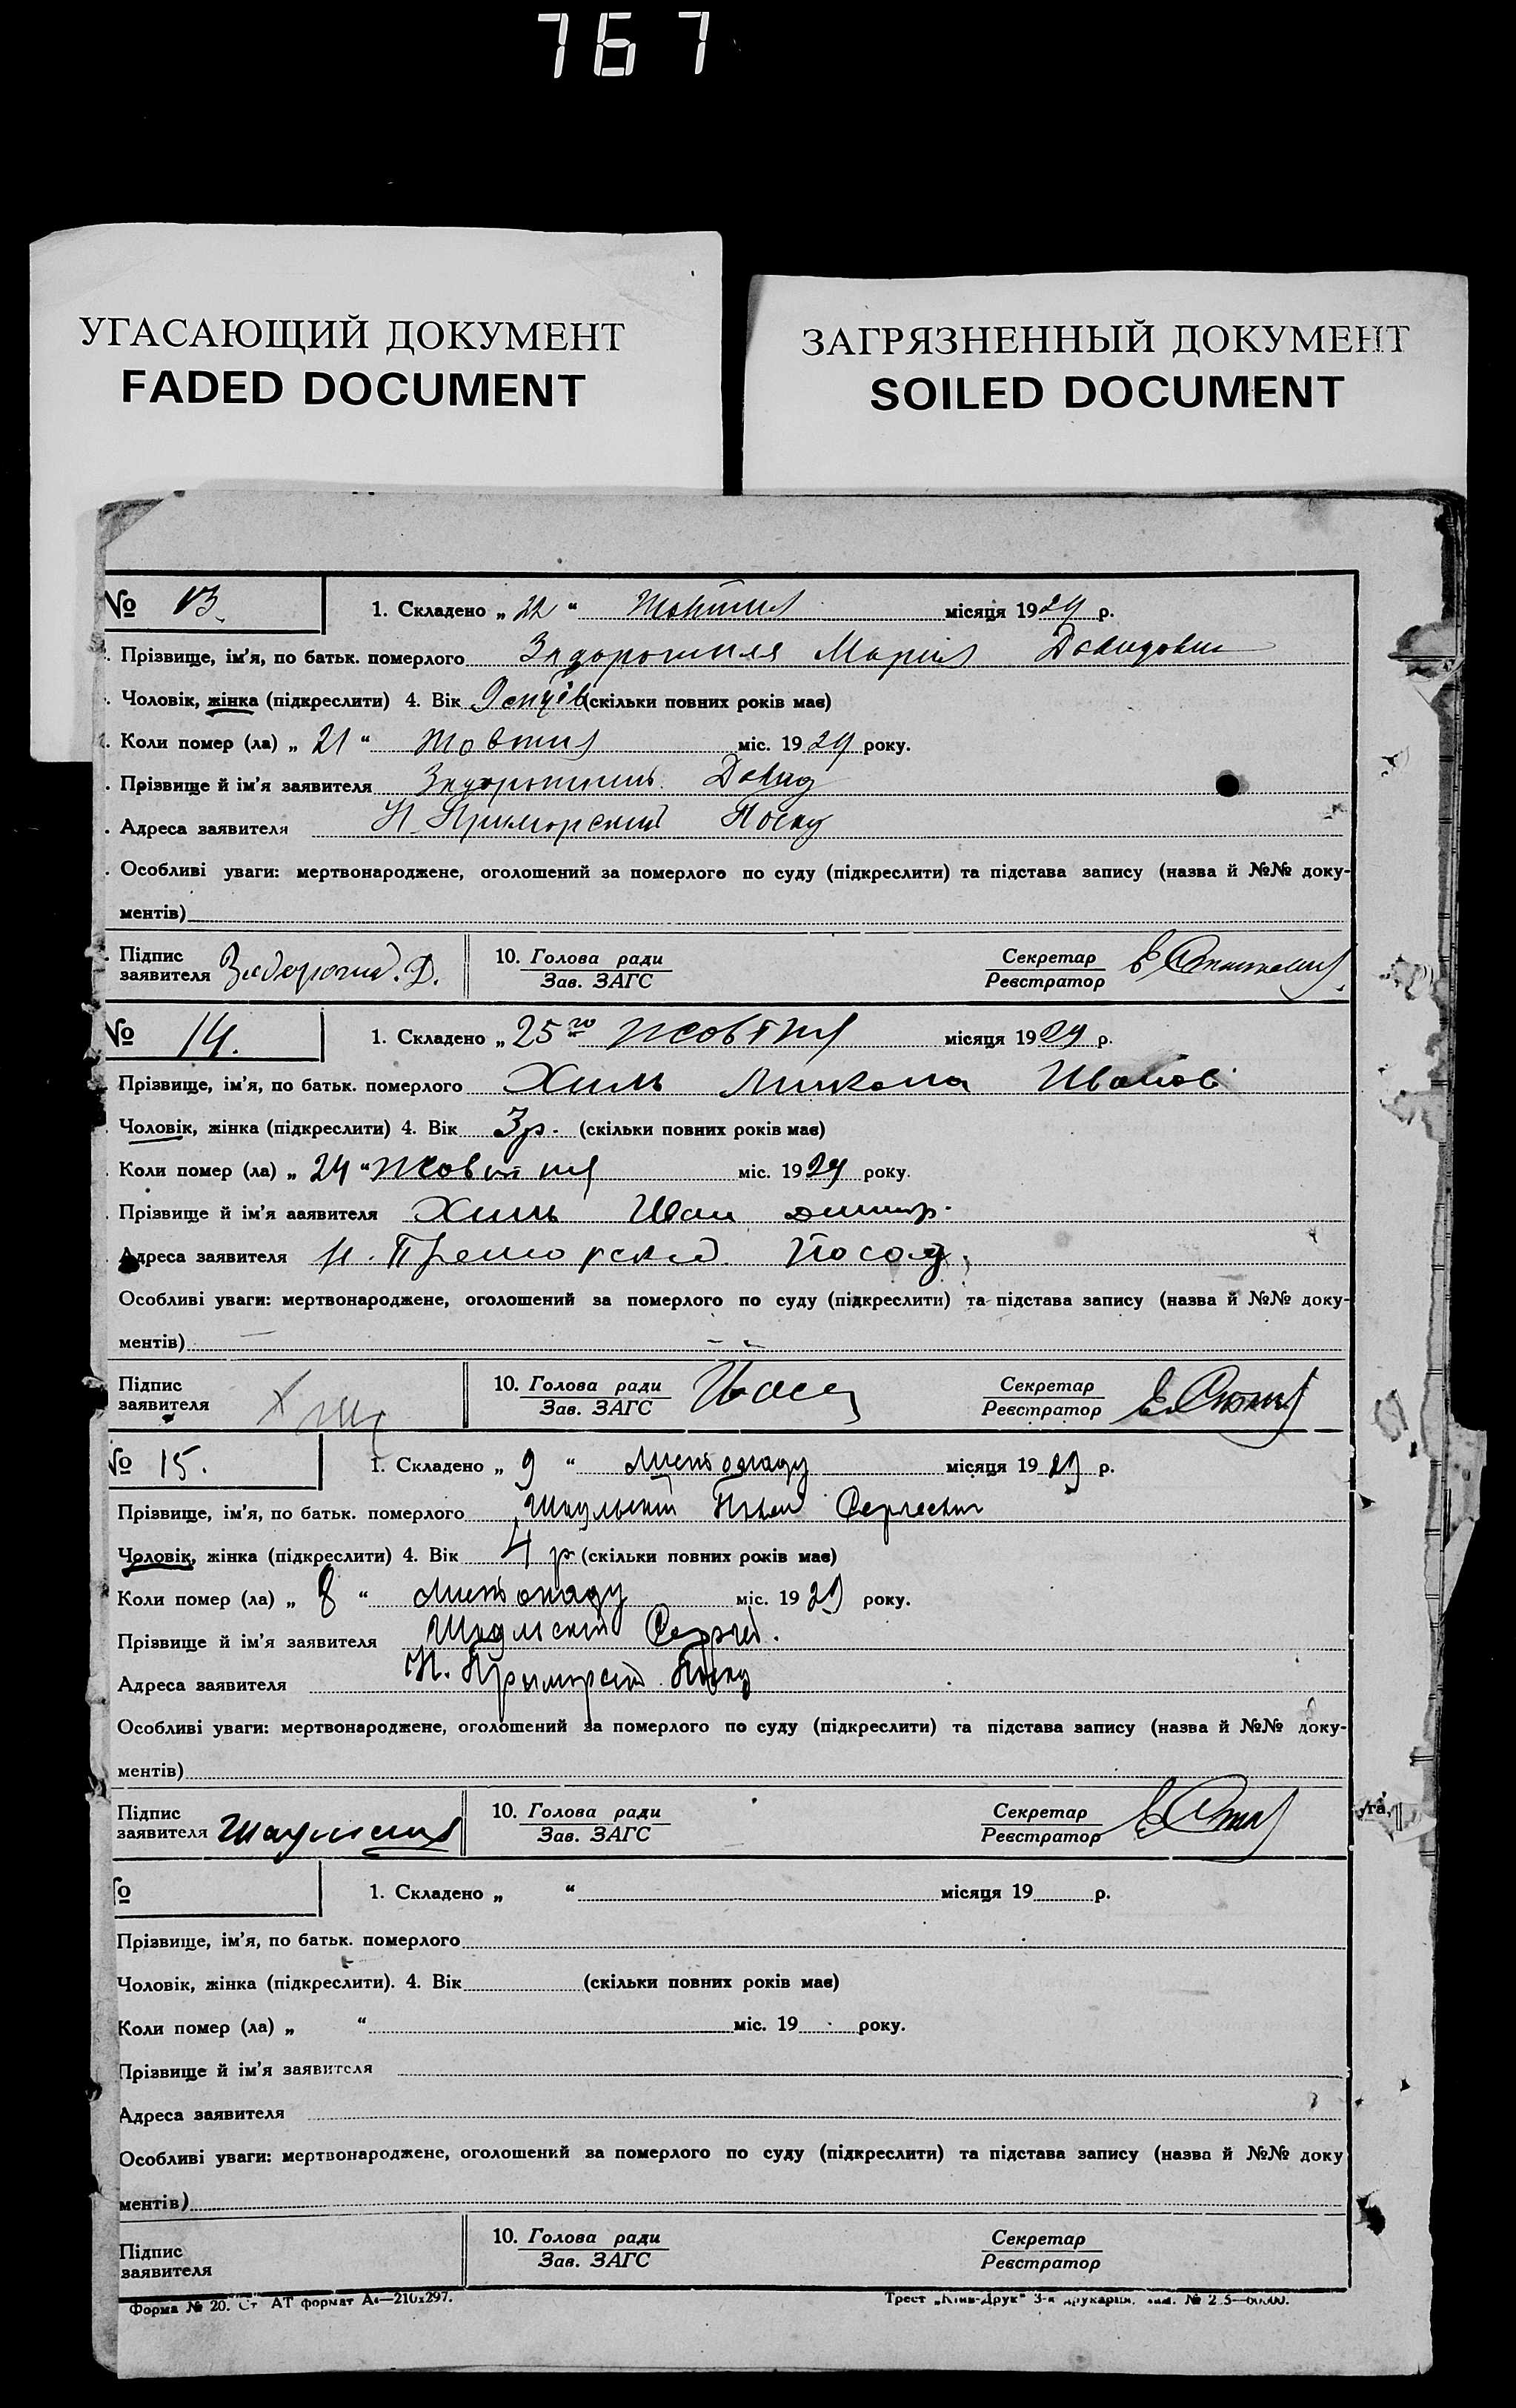 767
УГАСАЮЩИЙ ДОКУМЕНТ
FADED DOCUMENT
ЗАГРЯЗНЕННЫЙ ДОКУМЕНТ
SOILED DOCUMENT
№ 13. 1. Складено „ 22 “ місяця 1929 р.
Прізвище, ім'я, по батьк. померлого Марія
Чоловік, жінка (підкреслити) 4. Вік (скільки повних років має)
Коли помер (ла) „ 21 “ Жовтня міс. 1929 року.
Прізвище й ім'я заявителя Давид
Адреса заявителя Н. Приморский Посад
Особливі уваги: мертвонароджене, оголошений за померлого по суду (підкреслити) та підстава запису (назва й №№ доку-
ментів)
Підпис
заявителя Д. 10. Голова ради
Зав. ЗАГС Секретар
Реєстратор
№ 14. 1. Складено „ 25го Жовтня місяця 1929 р.
Прізвище, ім'я, по батьк. померлого Хиль Микола Иванов
Чоловік, жінка (підкреслити) 4. Вік 3 р. (скільки повних років має)
Коли помер (ла) „ 24 “ Жовтня міс. 1929 року.
Прізвище й ім'я заявителя Хиль Иван
Адреса заявителя Н. Посад
Особливі уваги: мертвонароджене, оголошений за померлого по суду (підкреслити) та підстава запису (назва й №№ доку-
ментів)
Підпис
заявителя 10. Голова ради
Зав. ЗАГС Секретар
Реєстратор
№ 15. 1. Складено „ 9 “ Листопаду місяця 1929 р.
Прізвище, ім'я, по батьк. померлого Сергеевич
Чоловік, жінка (підкреслити) 4. Вік 4 р (скільки повних років має)
Коли помер (ла) „ 8 “ Листопаду міс. 1929 року.
Прізвище й ім'я заявителя Сергей.
Адреса заявителя Н. Посад
Особливі уваги: мертвонароджене, оголошений за померлого по суду (підкреслити) та підстава запису (назва й №№ доку-
ментів)
Підпис
заявителя 10. Голова ради
Зав. ЗАГС Секретар
Реєстратор
1. Складено „ “ місяця 19 р.
Прізвище, ім'я, по батьк. померлого
Чоловік, жінка (підкреслити). 4. Вік (скільки повних років має)
Коли помер (ла) „ “ міс. 19 року.
Прізвище й ім'я заявителя
Адреса заявителя
Особливі уваги: мертвонароджене, оголошений за померлого по суду (підкреслити) та підстава запису (назва й №№ доку
ментів)
Підпис
заявителя 10. Голова ради
Зав. ЗАГС Секретар
Реєстратор
Форма № 20. Ст АТ формат А4—210х297. Трест „Київ-Друк“ 3-я друкарня,